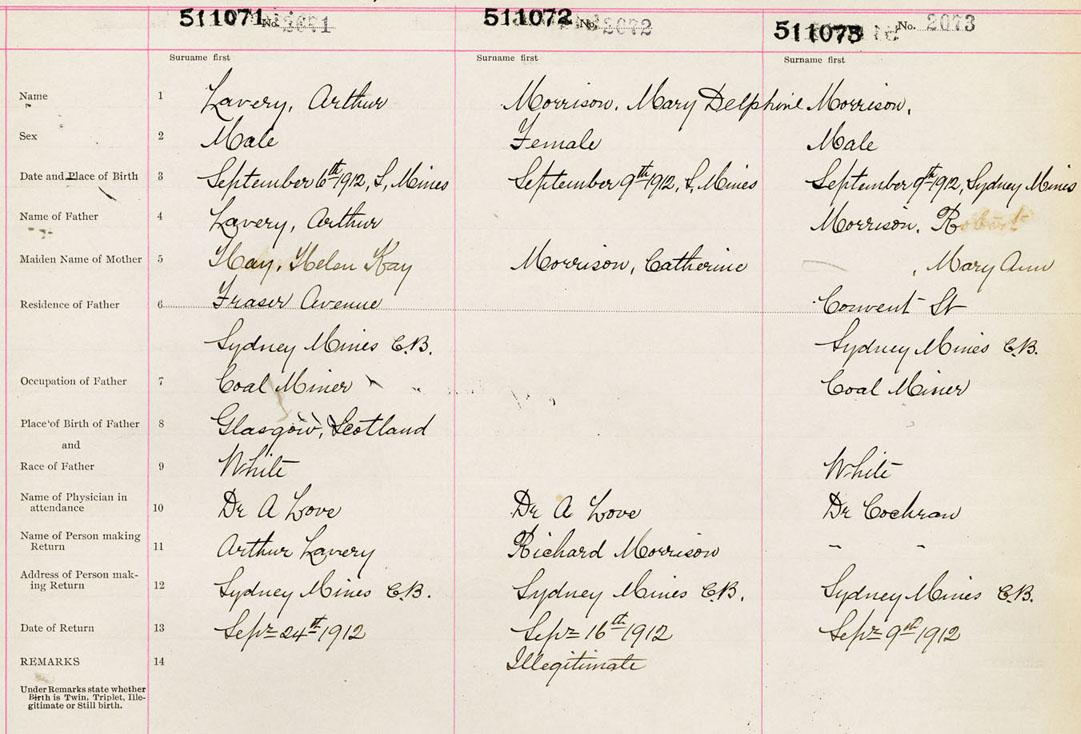 511071 No. 2071 511072 No. 2072 511073 No. 2073
Surname first Surname first Surname first
Name 1 Lavery, Arthur Morrison, Mary Delphine Morrison,
Sex 2 Male Female Male
Date and Place of Birth 3 September 6th 1912, S, Mines September 9th 1912, S, Mines September 9th 1912, Sydney Mines
Name of Father 4 Lavery, Arthur Morrison, Robert
Maiden Name of Mother 5 Hay, Helen Kay Morrison, Catherine , Mary Ann
Residence of Father 6 Fraser Avenue Convent St
Sydney Mines C.B. Sydney Mines C.B.
Occupation of Father 7 Coal Miner Coal Miner
Place of Birth of Father 8 Glasgow, Scotland
and
Race of Father 9 White White
Name of Physician in
attendance 10 Dr A Love Dr A Love Dr Cochran
Name of Person making
Return 11 Arthur Lavery Richard Morrison - -
Address of Person mak-
ing Return 12 Sydney Mines C.B. Sydney Mines C.B. Sydney Mines C.B.
Date of Return 13 Sept 24th 1912 Sept 16th 1912 Sept 9th 1912
REMARKS 14 Illegitimate
Under Remarks state whether
Birth is Twin, Triplet, Ille-
gitimate or Still birth.